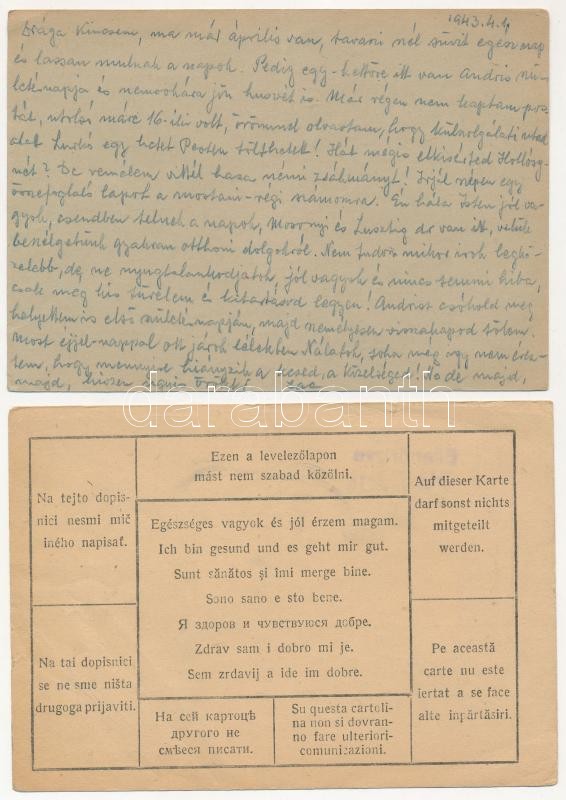 1943.4.4
Drága Kincsem, ma már április van, tavasi szél süvit egész nap
és lassan mulnak a napok. Pedig egy-kettőre itt van Andris szü-
letésnapja és nemsokára jön husvét is. Már régen nem kaptam pos-
tát, utolsó márc 16-iki volt, örömmel olvastam, hogy
egy hetet Pesten tölthettek! Hát mégis elkisérted
De remélem vittél haza némi zsákmányt! Irjál szépen egy
összefoglaló lapot a mostani-régi számomra. Én hála Istennek jól va-
gyok, csendben telnek a napok, Mosonyi és Lusztig dr van itt, velük
beszélgetünk gyakran otthoni dolgokról. Nem tudom mikor irok legkö-
zelebb, de ne nyugtalankodjatok, jól vagyok és nincs semmi hiba,
csak még kis türelem és kitartásod legyen! Andrist csókold meg
helyettem is első születésnapján, majd személyesen visszakapod tőlem.
Most éjjel-nappal ott járok lélekben Nálatok, soha még ugy nem érez-
tem, hogy mennyire hiányzik a kezed, a közelséged! No de majd,
majd, hiszen
Ezen a levelezőlapon
mást nem szabad közölni.
Na tejto dopis-
nici nesmi mič
iného napisať.
Auf dieser Karte
darf sonst nichts
mitgeteilt
werden.
Egészséges vagyok és jól érzem magam.
Ich bin gesund und es geht mir gut.
Sunt sănătos şi îmi merge bine.
Sono sano e sto bene.
Я здоров и чувствуюся добре.
Zdrav sam i dobro mi je.
Sem zrdavij a ide im dobre.
Na tai dopisnici
se ne sme ništa
drugoga prijaviti.
Pe această
carte nu este
iertat a se face
alte inpărtăsiri.
На сей картоцѣ
другого не
смѣеся писати.
Su questa cartoli-
na non si dovran-
no fare ulteriori-
comunicazioni.
darabanth